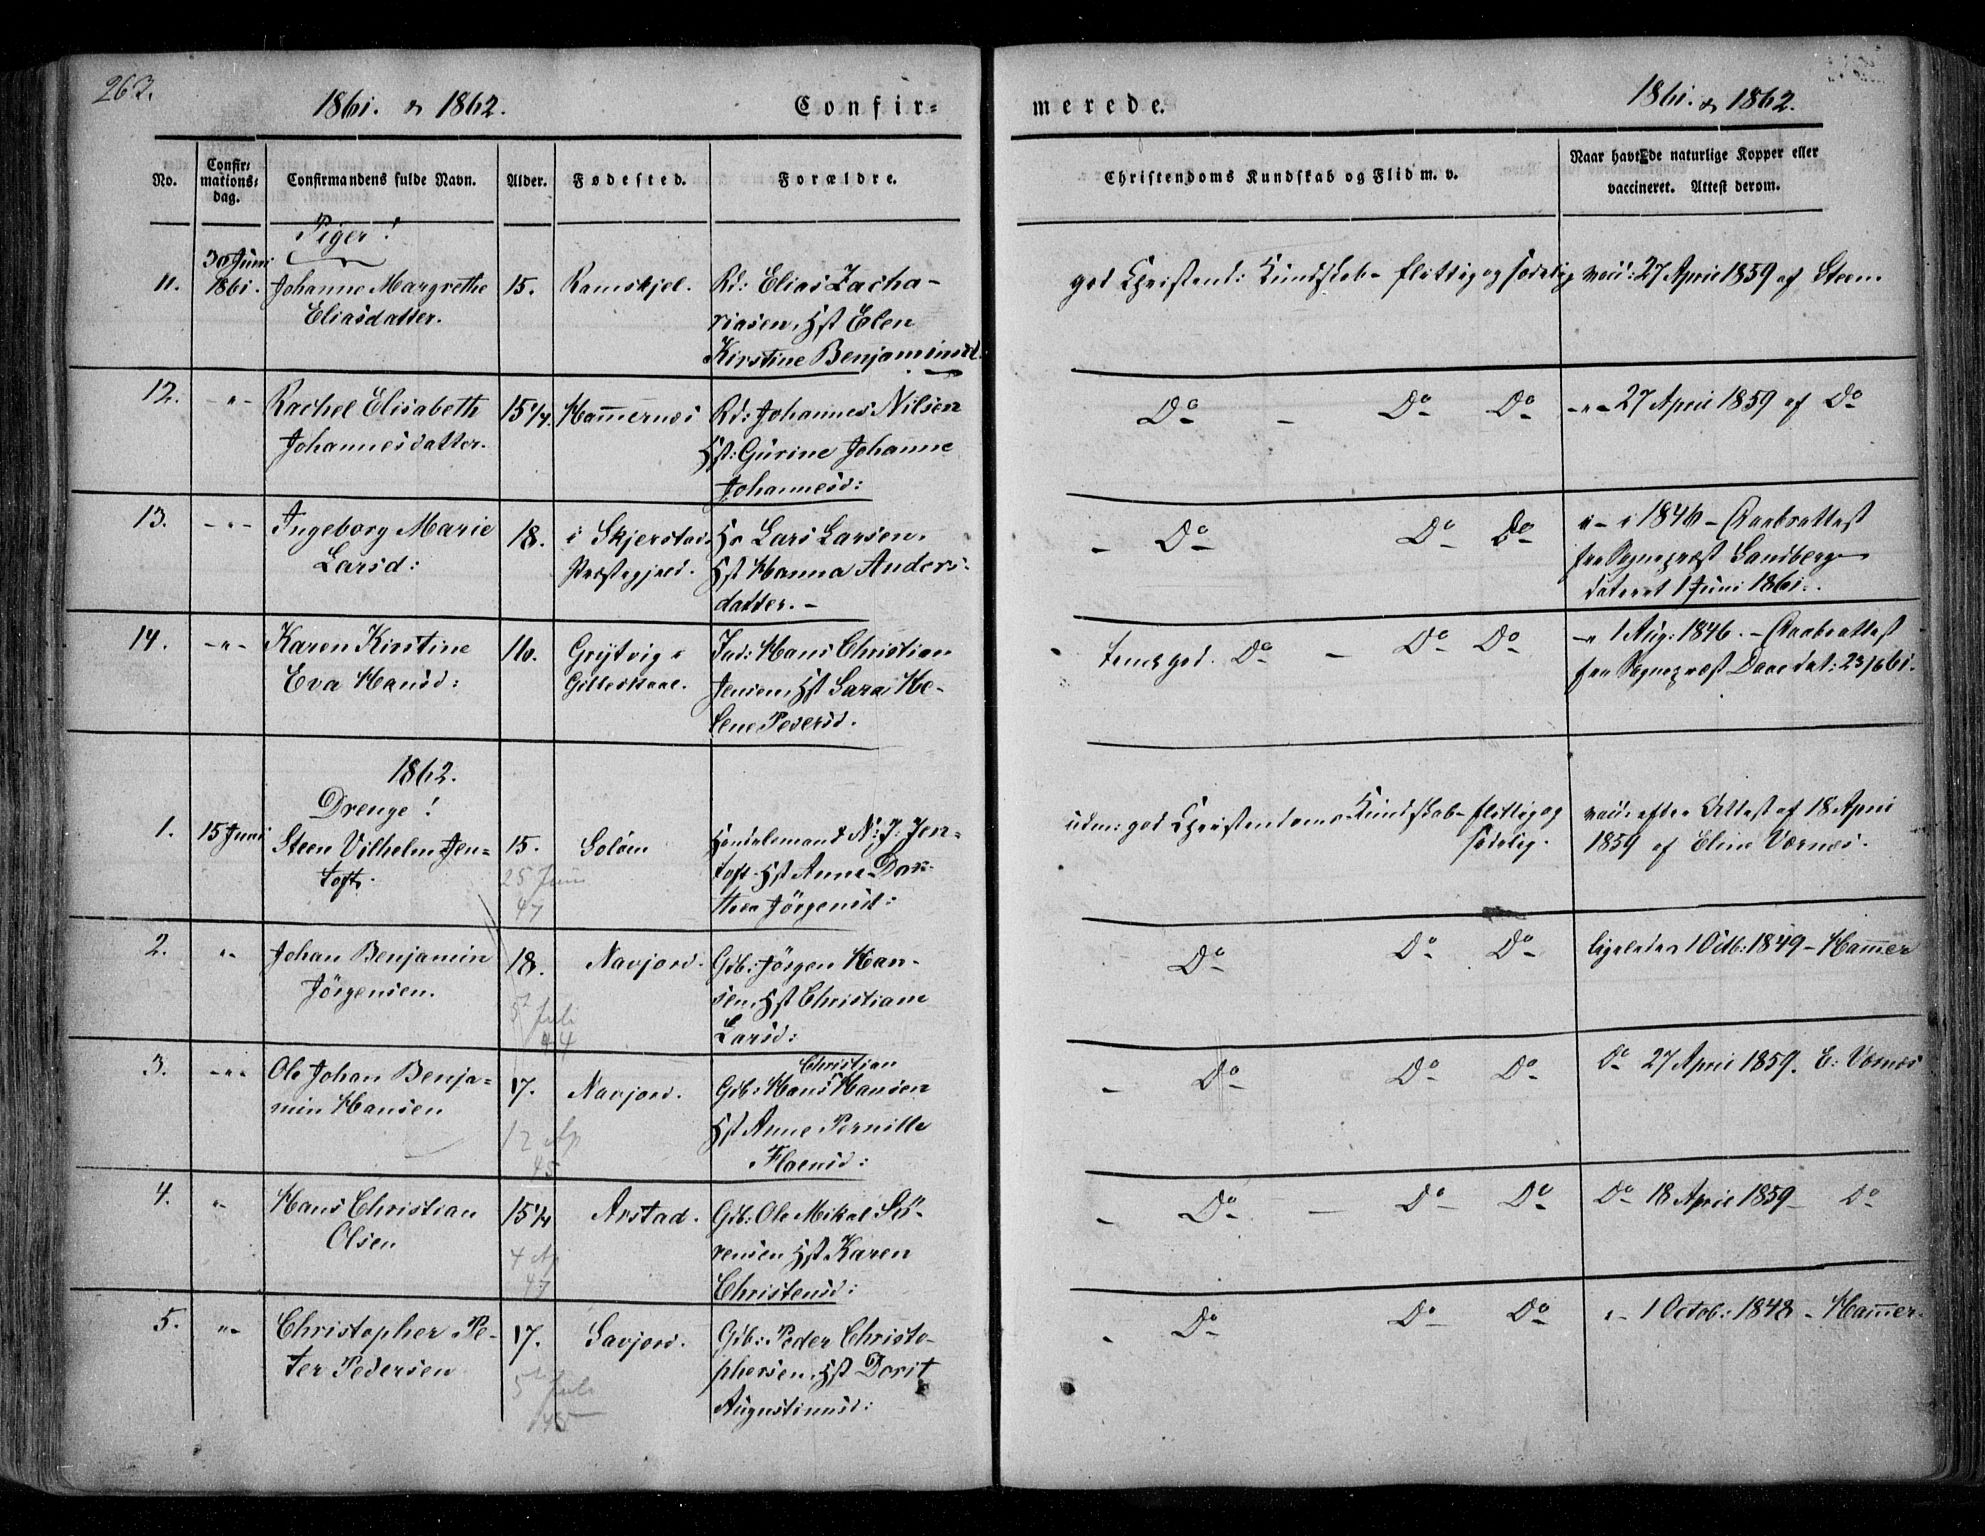 263.
1861. & 1862.
Confir=
merede.
1861. & 1862.
No.
Confir=
mations=
dag.
Confirmandens fulde Navn.
Alder.
Fødested.
Forældre.
Christendoms Kundskab og Flid m. v.
Naar havt de naturlige Kopper eller
vaccineret. Attest derom.
Piger!
11.
30 Juni
1861.
Johanne Margrethe
Eliasdatter.
15.
Ramskjel.
Rd: Elias Zacha-
riasen, Hst Elen
Kirstine Benjaminsd.
god Christend: Kundskab - flittig og sædelig
vacc: 27 April 1859 af Steen.
12.
-"-
Rachel Elisabeth
Johannesdatter.
15 1/4.
Hamernæs
Rd: Johannes Nilsen
Hst: Gurine Johanne
Johannesd:
Do - Do Do
-"- 27 April 1859 af Do
13.
-"-
Ingeborg Marie
Larsd:
18.
i Skjerstad
Præstegjeld.
Lars Larsen,
Hst Hanna Anders-
datter. -
- Do Do Do
i 1846 -
fra Sognepræst Sandberg
dateret 1 Juni 1861.
14.
-"-
Karen Kirstine
Eva Hansd:
16.
Grytvig i
Gilleskaal.
Ind: Hans Christian
Jensen, Hst Sara He-
lene Pedersd.
temmegod. Do - Do Do
-" 1 Aug: 1846. -
fra Sognepræst Daae dat: 23/5 61.
1862.
Drenge!
1.
15 Juni
Steen Vilhelm Jen-
toft.
15.
25 Juni
47
Soløen
Handelsmand N: J: Jen-
toft Hst Anne Dor-
thea Jörgensd:
udm: god Christendoms Kundskab - flittig og
sædelig.
vacc: efter Attest af 18 April
1859 af Eline Værnæs.
2.
"-
Johan Benjamin
Jörgensen.
18.
5 Juli
44
Navjord.
Gdb: Jörgen Han-
sen, Hst Christiane
Larsd:
Do Do Do
ligeledes 1 Octb: 1849 - Hammer
3.
-"-
Ole Johan Benja-
min Hansen
17.
12 Ap
45
Navjord.
Christian
Gdb: Hans Hansen
Hst Anne Pernille
- Do Do Do
Do 27 April 1859. E: Værnæs
4.
"
Hans Christian
Olsen
15 1/4
4 Ap
47
Arstad.
Gdb: Ole Mikal Sö-
rensen Hst Karen
Christensd:
- Do - Do Do
Do 18 April 1859 - Do
5.
"-
Christopher Pe-
ter Pedersen
17.
5 Juli
45
Savjord.
Gdb: Peder Christo-
phersen, Hst Dorit
Augustinusd:
- Do Do Do
"- 1 Octob: 1848 - Hammer.